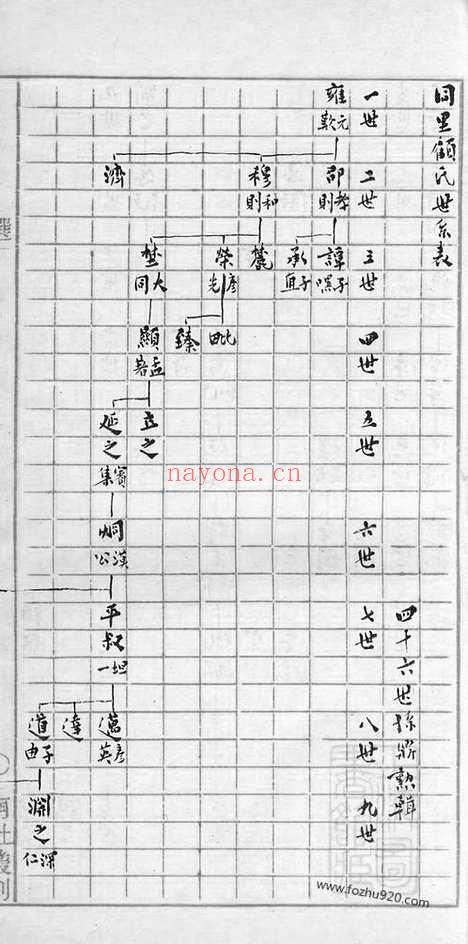 同里顧氏世系表
四十六世孫鼎勲輯
一世
二世
三世
四世
五世
六世
七世
八世
九世
雍 元歎
邵 孝則
穆 和則
濟
譚 子嘿
承 子直
榮 彥先
埜 大同
毗
臻
顯 孟著
立之
延之 賓集
烱 漢公
平叔 坦一
邁 彥英
達
道 子由
淵之 深仁
nayona.cn
www.fozhu920.com